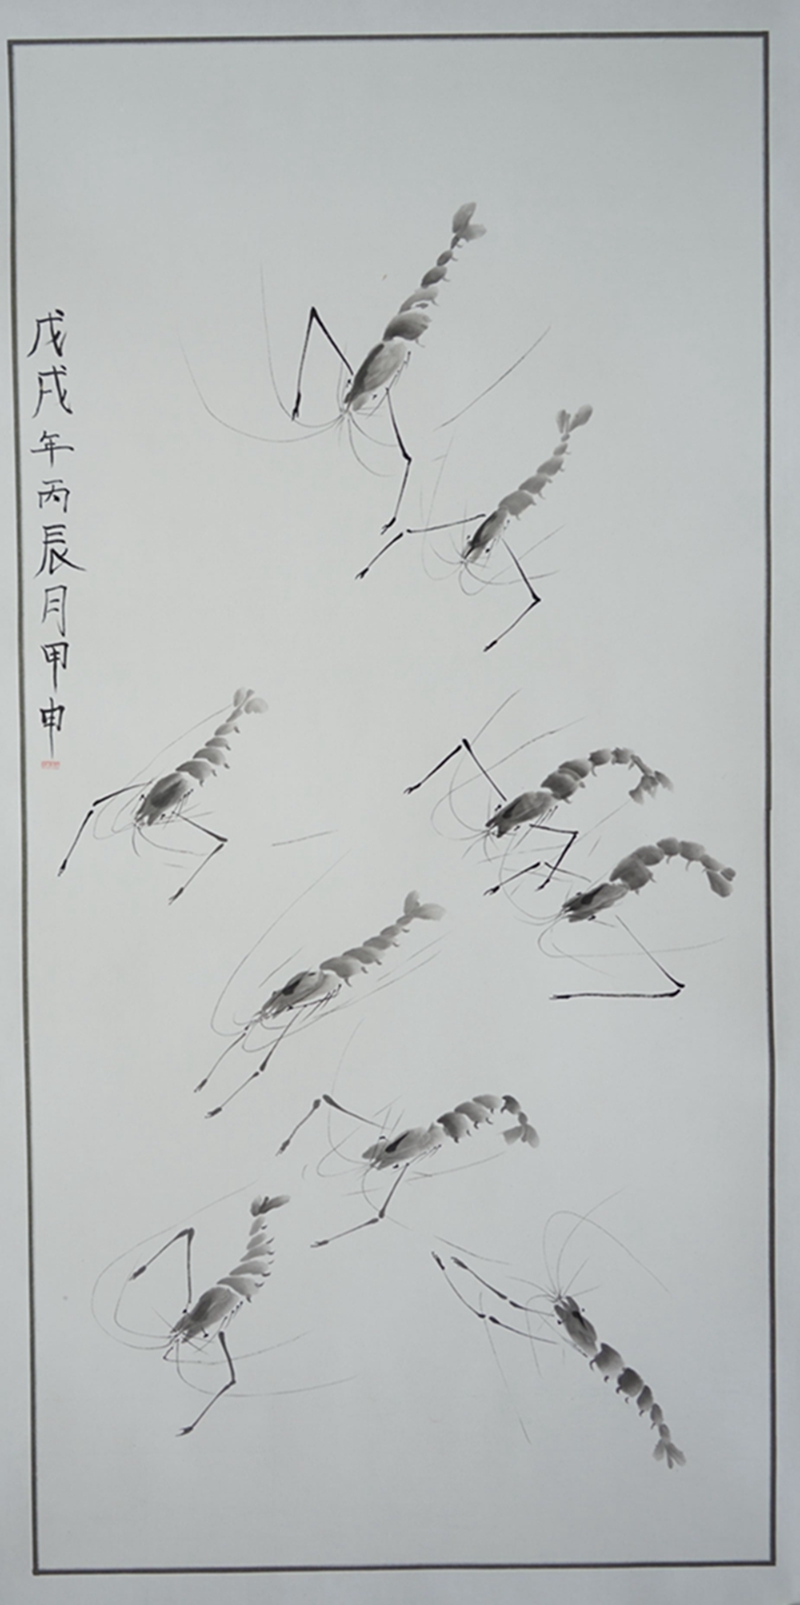 戊戌年丙辰月甲申